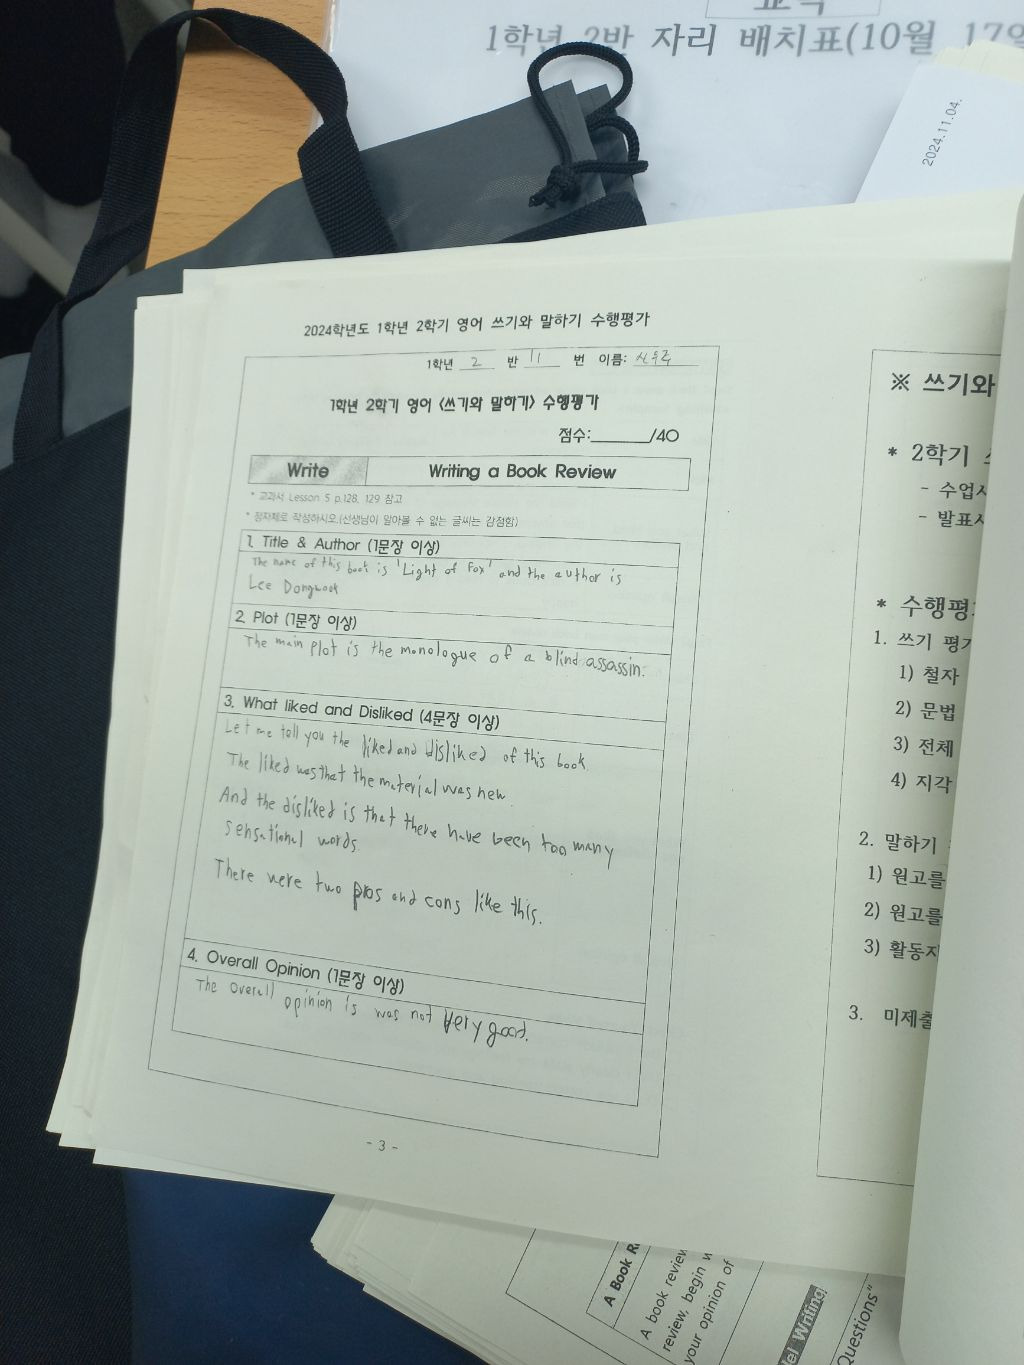 1학년 2반 자리 배치표(10월 17일
2024.11.04.
2024학년도 1학년 2학기 영어 쓰기와 말하기 수행평가
1학년 2 반 11 번 이름: 신우주
1학년 2학기 영어 <쓰기와 말하기> 수행평가
점수:______/40
Write Writing a Book Review
* 교과서 Lesson 5 p.128, 129 참고
* 정자체로 작성하시오.(선생님이 알아볼 수 없는 글씨는 감점함)
1. Title & Author (1문장 이상)
The name of this book is 'Light of Fox' and the author is
Lee Dongwook
2. Plot (1문장 이상)
The main plot is the monologue of a blind assassin.
3. What liked and Disliked (4문장 이상)
Let me tell you the liked and disliked of this book.
The liked was that the material was new.
And the disliked is that there have been too many
sensational words.
There were two pros and cons like this.
4. Overall Opinion (1문장 이상)
The overall opinion is was not very good.
- 3 -
※ 쓰기와
* 2학기
- 수업시
- 발표시
* 수행평가
1. 쓰기 평가
1) 철자
2) 문법
3) 전체
4) 지각
2. 말하기
1) 원고를
2) 원고를
3) 활동지
3. 미제출
A Book R
A book review
review, begin w
your opinion of
Writing
Questions"